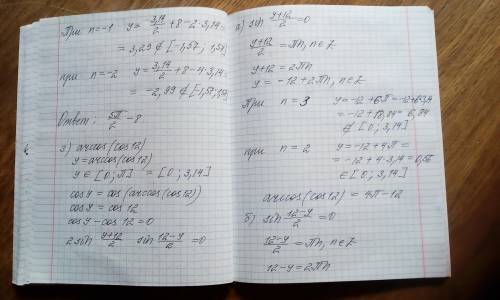 При n=-1 y= 3,14/2 +8-2·3,14=
= 3,29 ∉ [-1,57; 1,57]
при n=-2 y= 3,14/2 +8-4·3,14=
= -2,99 ∉ [-1,57; 1,57]
Ответ: 5π/2 -8
з) arccos(cos12)
y=arccos(cos12)
y ∈ [0; π] = [0; 3,14]
cosy = cos(arccos(cos12))
cosy = cos 12
cosy - cos 12 = 0
2sin (y+12)/2 sin (12-y)/2 = 0
а) sin (y+12)/2 = 0
(y+12)/2 = πn, n∈Z
y+12 = 2πn
y = -12+2πn, n∈Z
При n=3 y=-12+6π=-12+6·3,14
= -12+18,84= 6,84
∉ [0; 3,14]
при n=2 y=-12+4π=
= -12+4·3,14=0,56
∈ [0; 3,14]
arccos(cos12) = 4π-12
б) sin (12-y)/2 = 0
(12-y)/2 = πn, n∈Z
12-y = 2πn